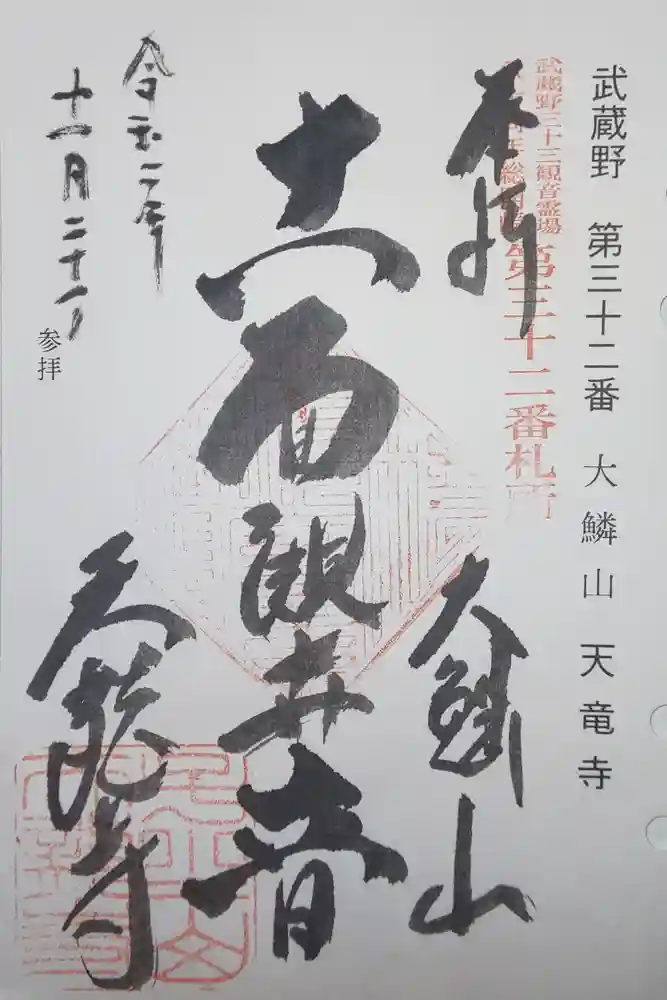 武蔵野 第三十二番 大鱗山 天竜寺
武蔵野三十三観音霊場
総開帳
第三十二番札所
奉拝
大鱗山
十一面観世音
天龍寺
令和二年
十一月二十一日
参拝